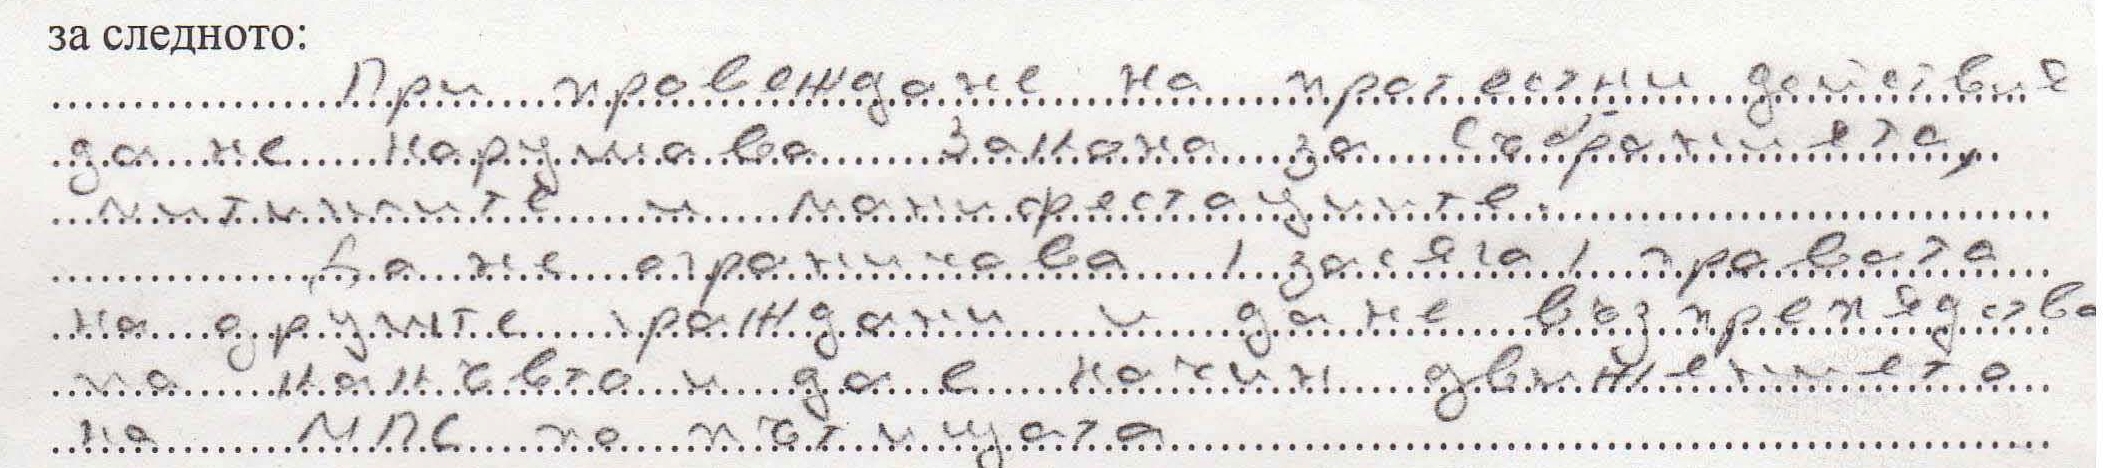 за следното:
При провеждане на протестни действия
да не нарушава Закона за събранията,
митингите и манифестациите.
Да не ограничава /засяга/ правата
на другите граждани и да не възпрепядства
по какъвто и да е начин движението
на МПС по пътищата